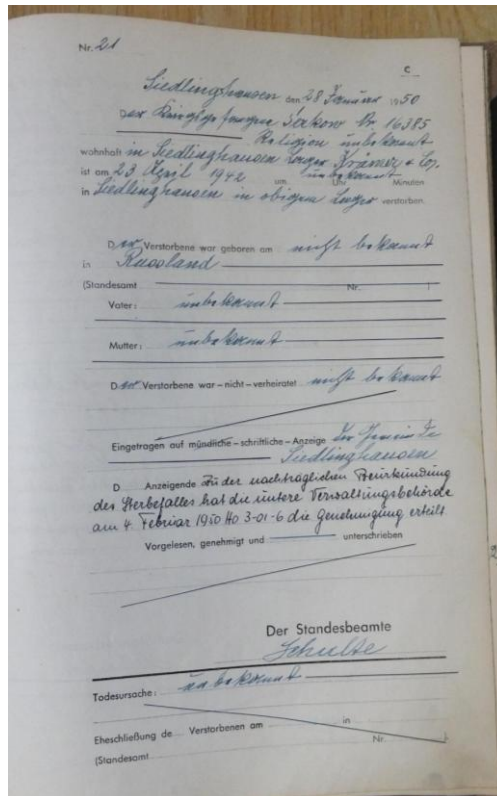 Nr. 21
C
Siedlinghausen den 28 Januar 1950
Der Kriegsgefangene Serkow Nr. 16385
Religion unbekannt
wohnhaft in Siedlinghausen Lager Krämer & Co.
ist am 23 April 1942 um unbekannt Uhr Minuten
in Siedlinghausen in obigen Lager verstorben.
Der Verstorbene war geboren am nicht bekannt
in Russland
(Standesamt Nr. )
Vater: unbekannt
Mutter: unbekannt
Der Verstorbene war – nicht – verheiratet nicht bekannt
Eingetragen auf mündliche – schriftliche – Anzeige der Gemeinde
Siedlinghausen
D Anzeigende Zu der nachträglichen Beurkundung
des Sterbefalles hat die untere Verwaltungsbehörde
am 4. Februar 1950 Ho 3-01-6 die Genehmigung erteilt
Vorgelesen, genehmigt und unterschrieben
Der Standesbeamte
Schulte
Todesursache: unbekannt
Eheschließung de Verstorbenen am in
(Standesamt Nr. )